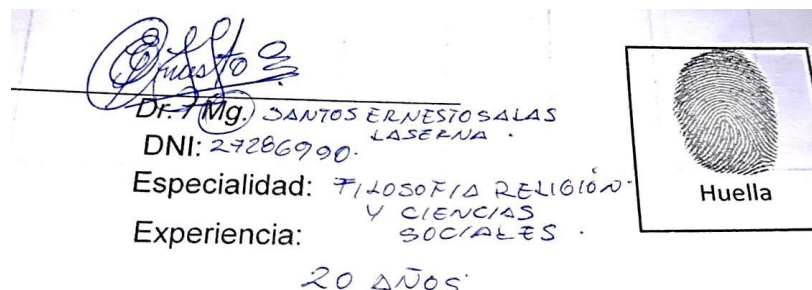 Ernesto S
Dr. / Mg. SANTOS ERNESTO SALAS
LASERNA.
DNI: 27286990.
Especialidad: FILOSOFIA RELIGIÓN
Y CIENCIAS
SOCIALES.
Experiencia:
20 AÑOS
Huella